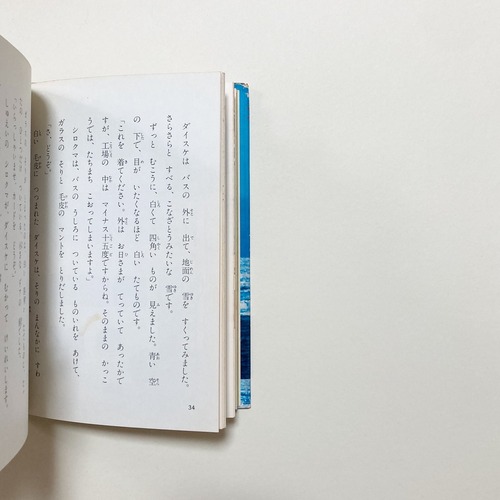 ダイスケは バスの 外に 出て、地面の 雪を すくってみました。
さらさらと すべる、こなざとうみたいな 雪です。
ずっと むこうに、白くて 四角い ものが 見えました。青い 空
の 下で、目が いたくなるほど 白い たてものです。
「これを 着てください。外は お日さまが てっていて あったかで
すが、工場の 中は マイナス十五度ですからね。そのままの かっこ
うでは、たちまち こおってしまいますよ。」
シロクマは、バスの うしろに ついている ものいれを あけて、
ガラスの そりと 毛皮の マントを とりだしました。
「さ、どうぞ。」
白い 毛皮に つつまれた ダイスケは、そりの まんなかに すわ
34